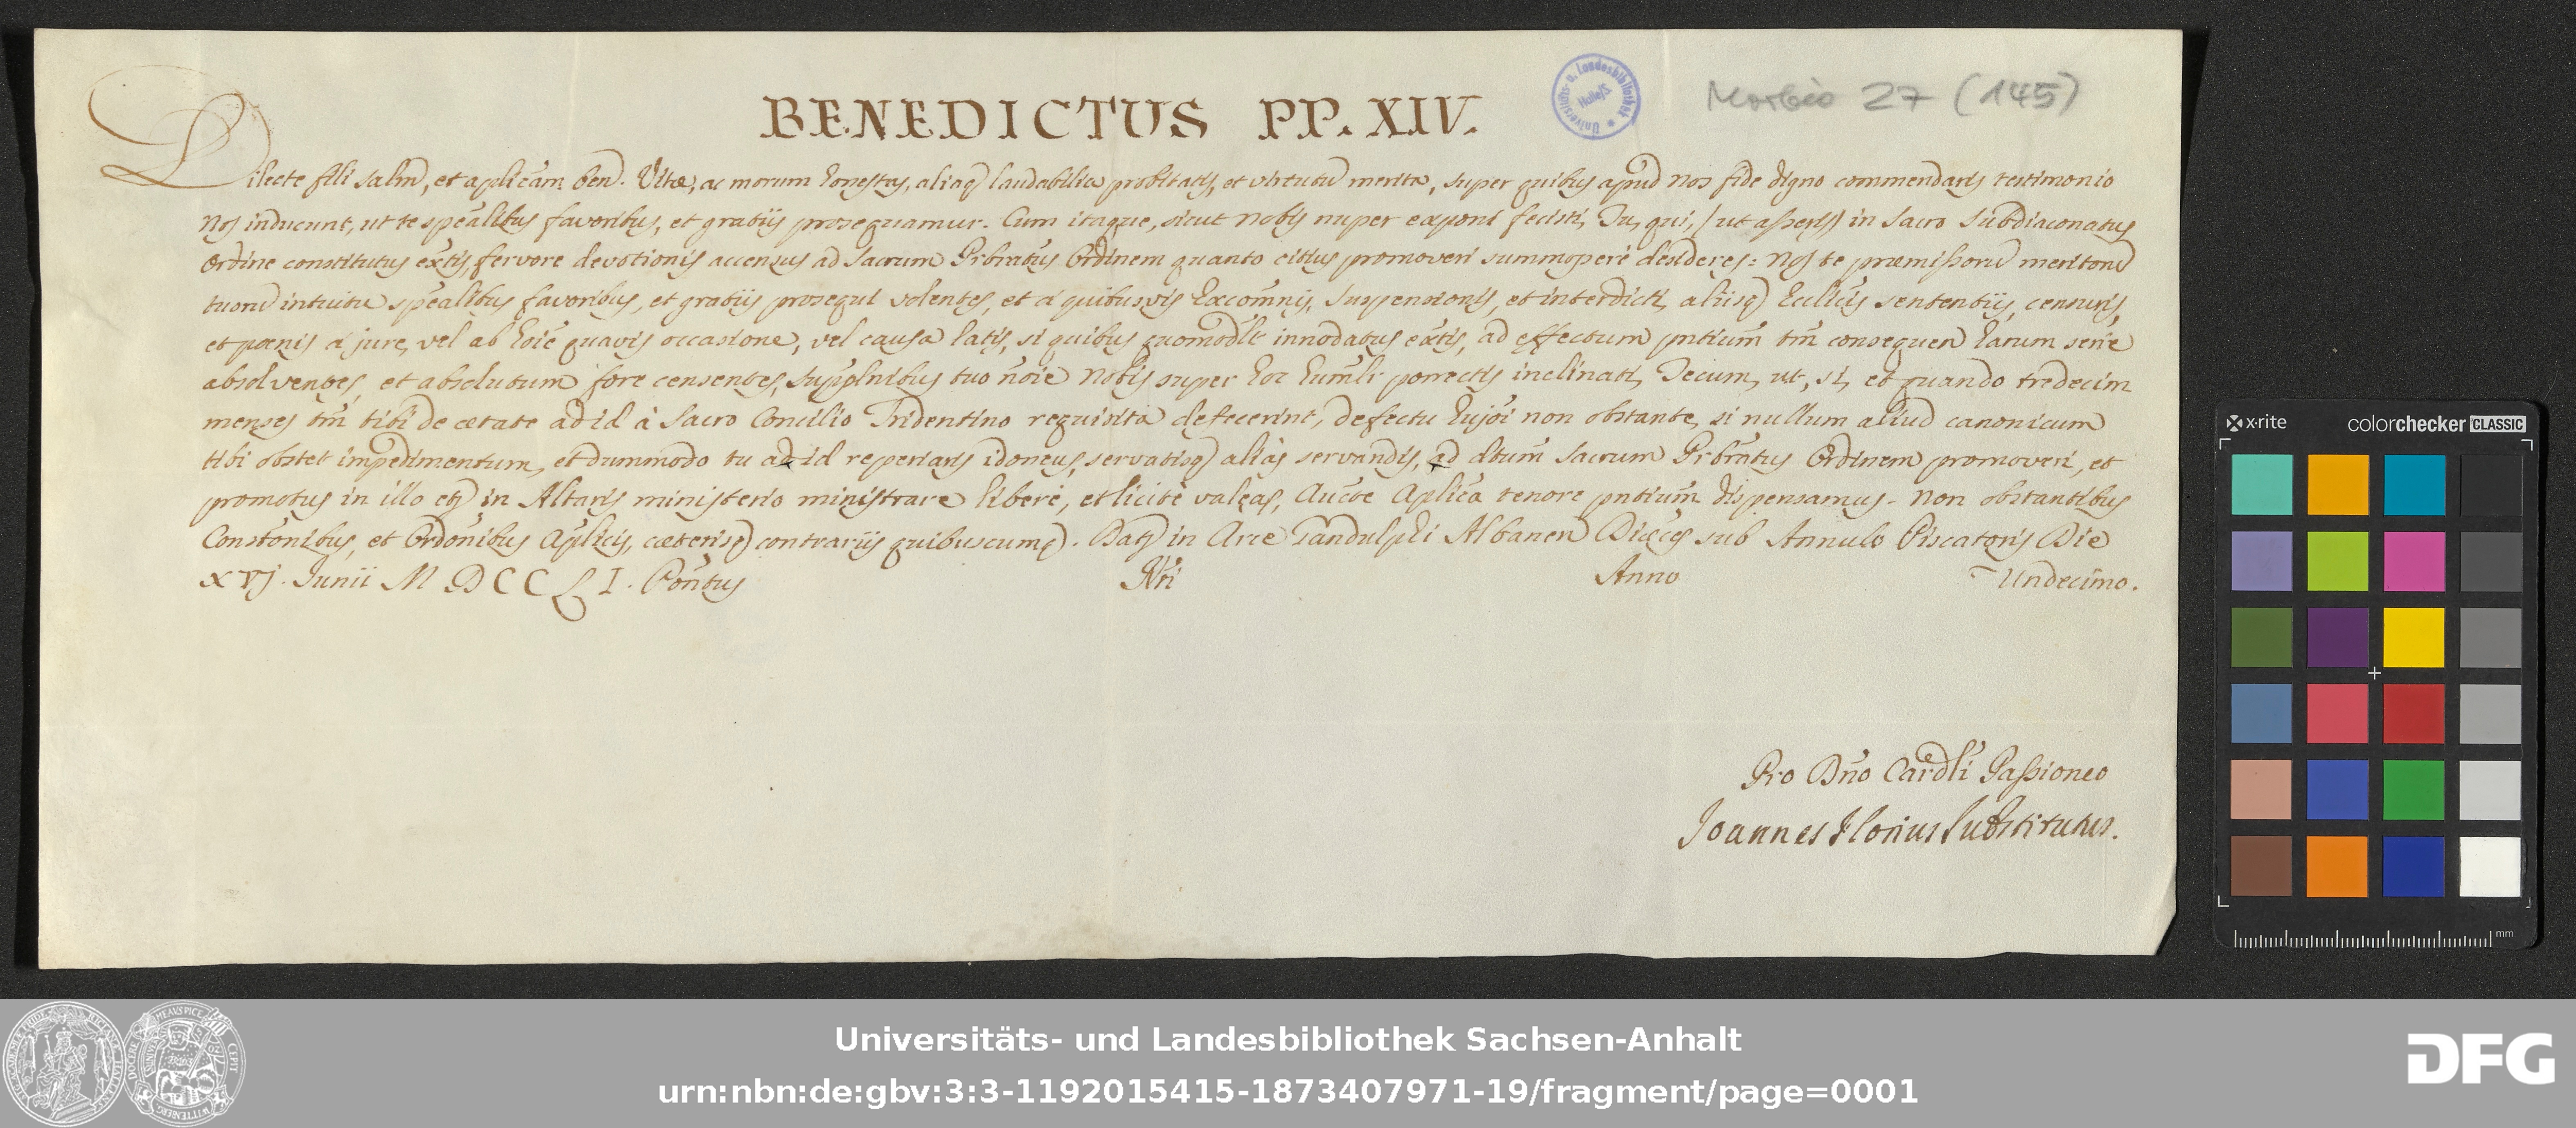 BENEDICTUS PP. XIV.
Universitäts- u. Landesbibliothek Halle/S.
Morbio 27 (145)
Dilecte fili salm̃, et aplicãm ben. Vitæ, ac morum honestas, aliaq laudabilia probitatis, et virtutũ merita, super quibus apud Nos fide digno commendaris testimonio
Nos inducunt, ut te speãlibus favoribus, et gratiis prosequamur. Cum itaque, sicut Nobis nuper exponi fecisti, Tu, qui, (ut asseris) in Sacro Subdiaconatus
Ordine constitutus ext̃is, fervore devotionis accensus ad Sacrum Prbratũs Ordinem quanto citius promoveri summoperè desideres: Nos te præmissorũ meritorũ
tuorũ intuitu speãlibus favoribus, et gratiis prosequi volentes, et à quibusvis Excomñis, suspensionis, et interdicti, aliisq Ecclic̃is sententiis, censuris,
et pœnis à jure, vel ab hoĩe quavis occasione, vel causa latis, si quibus quomodlt innodatus ext̃is, ad effectum pntium̃ tm̃ consequen harum serie
absolventes, et absolutum fore censentes, supplnibus tuo noĩe Nobis super hoc humlr̃ porrectis inclinati, Tecum, ut, si, et quando tredecim
menses tm̃ tibi de ætate ad id à Sacro Concilio Tridentino requisita defecerint, defectu hujõi non obstante, si nullum aliud canonicum
tibi obstet impedimentum, et dummodo tu ad id reperiaris idoneus, servatisq aliàs servandis, ad dtum̃ Sacrum Prbratũs Ordinem promoveri, et
promotus in illo etj in Altaris ministerio ministrare liberè, et licitè valeas, Aucte Aplica tenore pntium̃ dispensamus. Non obstantibus
Constonĩbus, et Ordonĩbus Aplicis, cæterisq contrariis quibuscumq. Dat in Arce Gandulphi Albanen Diæces sub Annulo Piscatoris Die
xvj. Junii MDCCLI. Ponttus Nri Anno Undecimo.
Pro Dño Cardli Passioneo
Joannes Florius Substitutus.
x-rite colorchecker CLASSIC
mm
Universitäts- und Landesbibliothek Sachsen-Anhalt
urn:nbn:de:gbv:3:3-1192015415-1873407971-19/fragment/page=0001
DFG